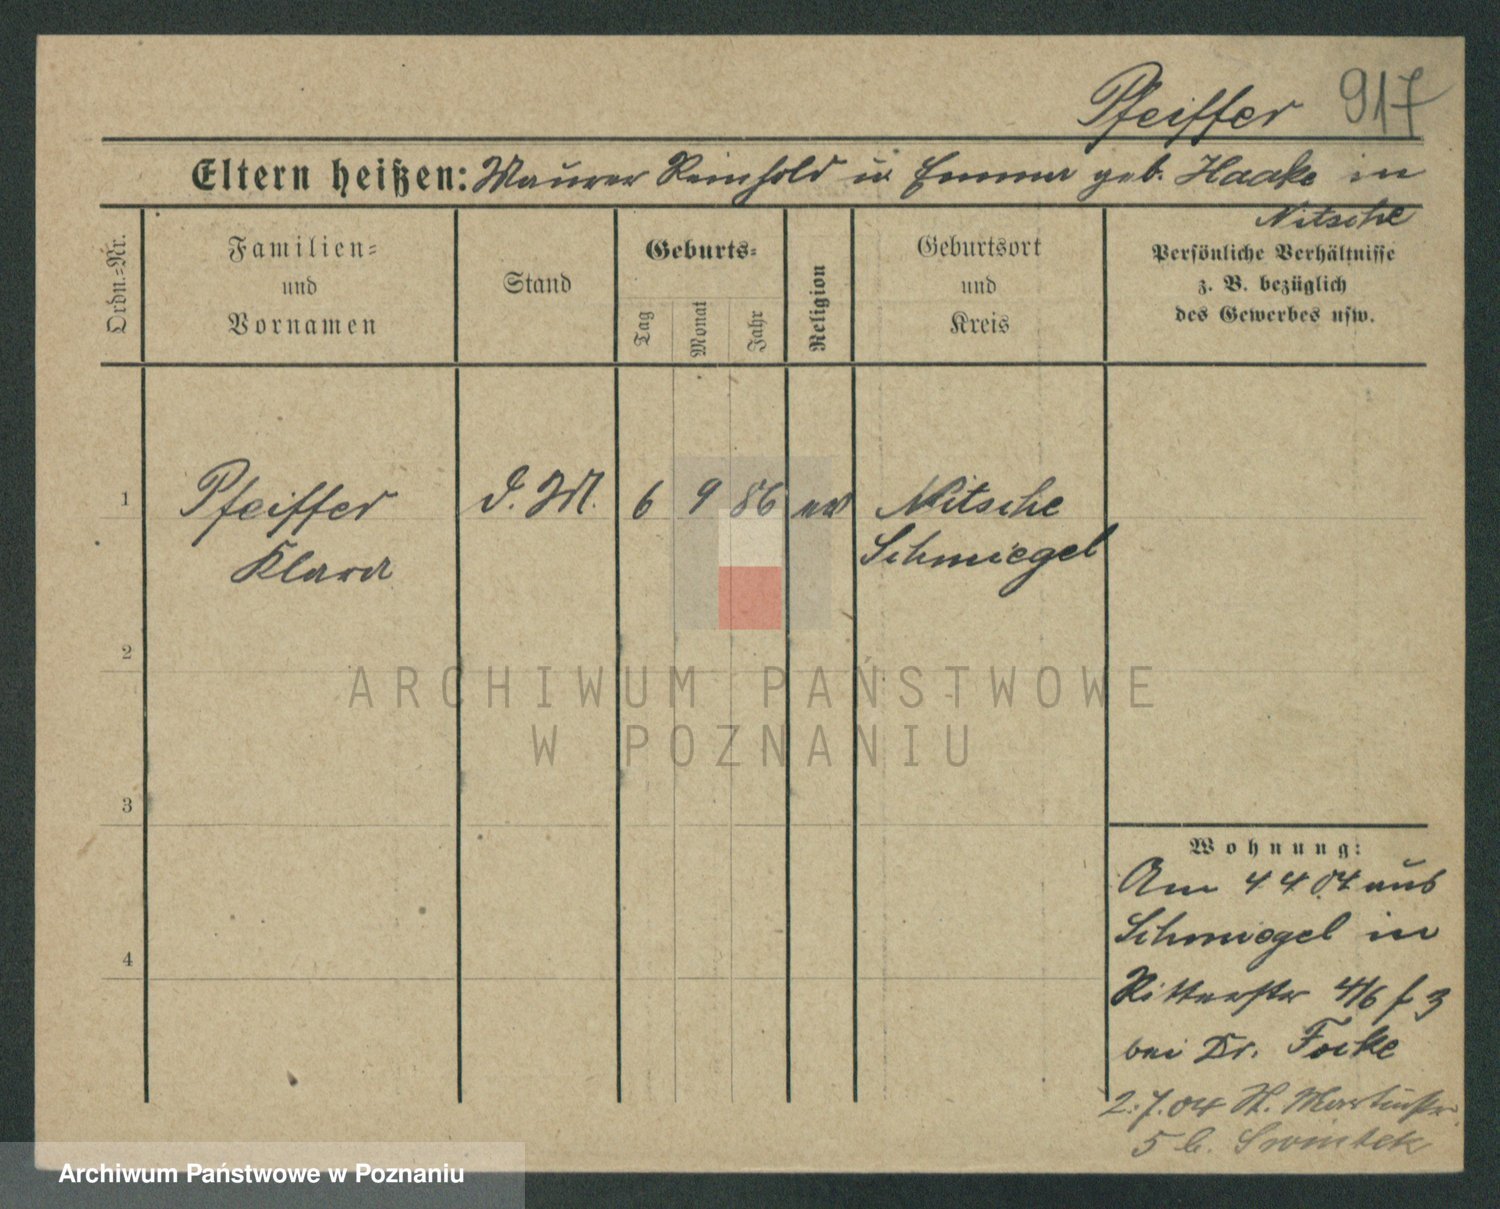 Pfeiffer 917
Eltern heißen: Maurer Reinhold u. Emma geb. Haake in
Nitsche
Ordn.=Nr.
Familien=
und
Vornamen
Stand
Geburts=
Tag
Monat
Jahr
Religion
Geburtsort
und
Kreis
Persönliche Verhältnisse
z. B. bezüglich
des Gewerbes usw.
1 Pfeiffer D. M. 6 9 86 ev Nitsche
Klara Schmiegel
2
3
4
Wohnung:
Am 4 4 04 aus
Schmiegel in
Ritterstr 4/6 f 3
bei Dr. Focke
2.7.04 H. Martinstr
5 b.
ARCHIWUM PAŃSTWOWE
W POZNANIU
Archiwum Państwowe w Poznaniu